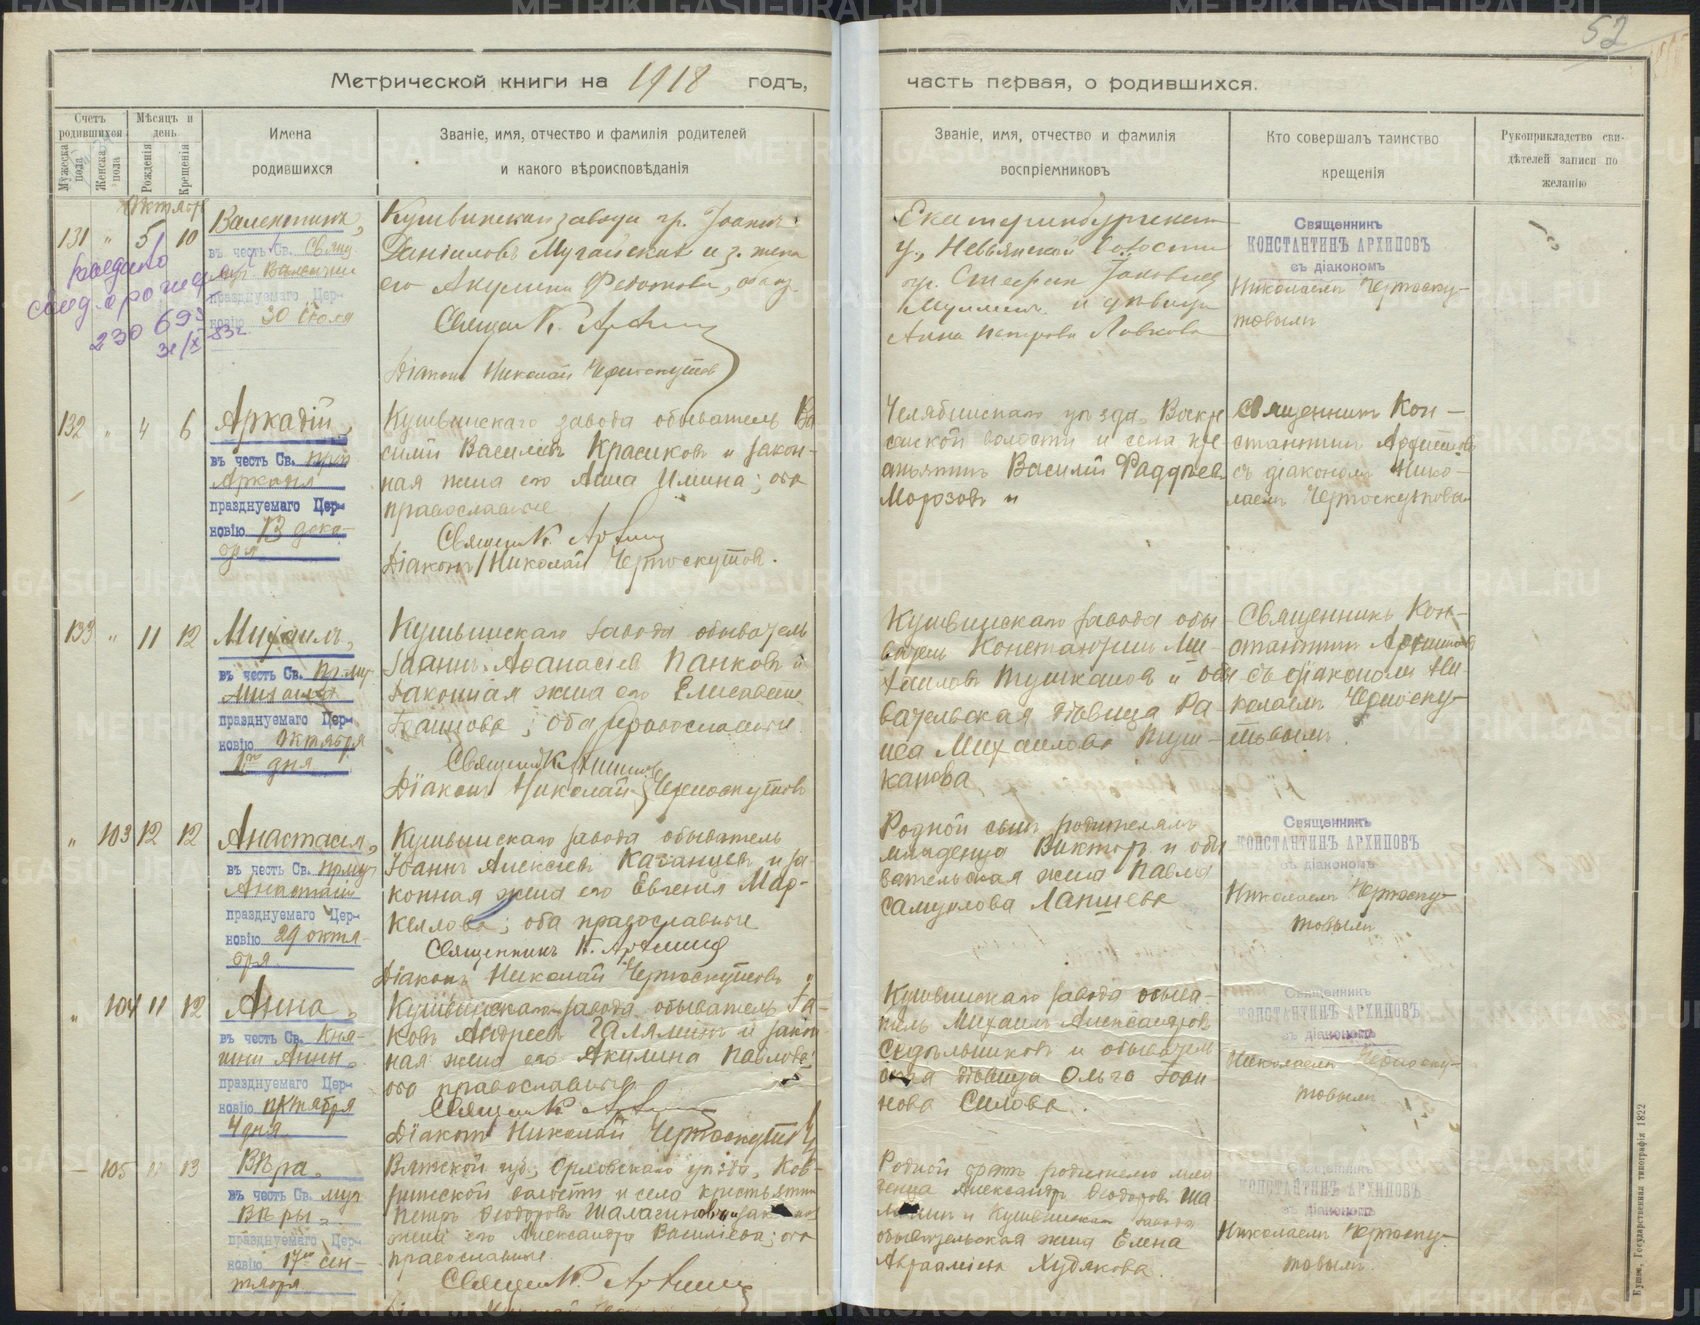 52
Метрической книги на 1918 годъ,
часть первая, о родившихся.
Счетъ родившихся
Мужеска пола
Женска пола
Мѣсяцъ и день
Рожденія
Крещенія
Имена
родившихся
Званіе, имя, отчество и фамилія родителей
и какого вѣроисповѣданія
Званіе, имя, отчество и фамилія
воспріемниковъ
Кто совершалъ таинство
крещенія
Рукоприкладство сви-
дѣтелей записи по
желанію
Октябрь
131 " 5 10
Валентинъ,
въ честь Св.
празднуемаго Цер-
ковію 30 Іюля
230693
Кушвинскаго завода гр. Іоаннъ
Даніиловъ и з. жена
его Акулина Федотова,
Священ К. Архипов
Діаконъ Николай Черноскутов
Екатеринбургскаго
у., Невьянской волости
гр. Стефан Іаковлев
и дѣвица
Анна Петрова
Священникъ
КОНСТАНТИНЪ АРХИПОВЪ
съ діакономъ
Николаемъ Черноску-
товымъ
132 " 4 6
Аркадій,
въ честь Св. прп
Аркадія
празднуемаго Цер-
ковію 13 дека-
бря
Кушвинскаго завода обыватель Ва
силій Васильевъ Красиковъ и закон-
ная жена его Анна; оба
православные
Священ К. Архипов
Діаконъ Николай Черноскутов.
Челябинскаго уѣзда, Воскре
сенской волости и села кре-
стьянинъ Василій Фаддѣев
Морозовъ и
Священникъ Кон-
стантинъ Архиповъ
съ діакономъ Нико-
лаемъ Черноскутовы
133 " 11 12
Михаилъ,
въ честь Св.
Михаила
празднуемаго Цер-
ковію Октября
1го дня
Кушвинскаго завода обыватель
Іоаннъ Аѳанасіев Панковъ и
законная жена его Елисавета
Іоаннова; оба православные.
Священ К Архипов
Діаконъ Николай Черноскутовъ
Кушвинскаго завода обы-
ватель Константинъ Ми-
хаиловъ Тушкановъ и обы
вательская дѣвица Ра
иса Михаилова Туш-
канова
Священникъ Кон-
стантинъ Архиповъ
съ діакономъ Ни
колаемъ Черноску-
товымъ.
" 103 12 12
Анастасія,
въ честь Св. прмуч
Анастасіи
празднуемаго Цер-
ковію 29 октя-
бря.
Кушвинскаго завода обыватель
Іоаннъ Алексіев и за-
конная жена его Евгенія Мар-
келлова; оба православные
Священникъ К. Архипов
Діаконъ Николай Черноскутовъ
Родной сынъ родителямъ
младенца Викторъ и обы
вательская жена Павла
Самуилова Лапшева
Священникъ
КОНСТАНТИНЪ АРХИПОВЪ
съ діакономъ
Николаемъ Черноску-
товымъ
" 104 11 12
Анна,
въ честь Св. Кня-
гини Анны.
празднуемаго Цер-
ковію октября
4 дня
Кушвинскаго завода обыватель Іа-
ковъ Андреев Галяминъ и закон
ная жена его Акилина Павлова
оба православные
Священ К. Архипов
Діаконъ Николай Черноскутовъ
Кушвинскаго завода обыва-
тель Михаилъ Александров
Сѣдѣльниковъ и обыватель
ская дѣвица Ольга Іоан-
нова Силова.
Священникъ
КОНСТАНТИНЪ АРХИПОВЪ
съ діакономъ
Николаемъ Черноску-
товымъ
– 105 11 13
Вѣра,
въ честь Св. муч
Вѣры.
празднуемаго Цер-
ковію 17го сен-
тября
Вятской губ., Орловскаго уѣзда,
волости и села крестьянин
Петръ Ѳеодоровъ и закон
жена его Александра Васильева; оба
православные.
Священ К Архипов
Родной братъ родителю мла
денца Александръ Ѳеодоров
и Кушвинскаго завода
обывательская жена Елена
Авраамиева Худякова.
Священникъ
КОНСТАНТИНЪ АРХИПОВЪ
съ діакономъ
Николаемъ Черноску-
товымъ.
Кушва, Государственная типографія 1822
METRIKI.GASU-URAL.RU